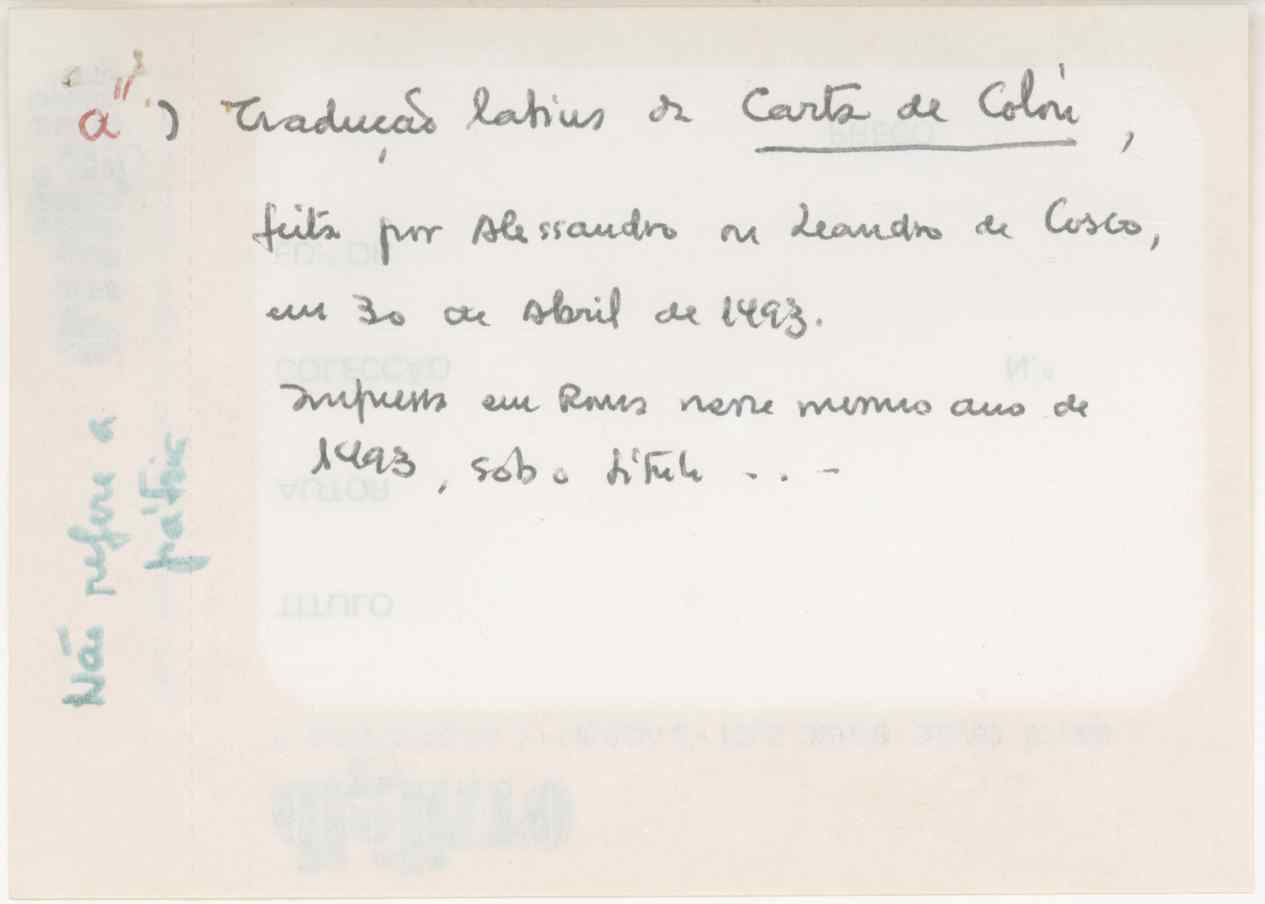 a'') Tradução latina da Carta de Colón,
feita por Alessandro ou Leandro de Cosco,
em 30 de Abril de 1493.
Impressa em Roma nesse mesmo ano de
1493, sob o título ...-
Não refere a
pátria
PREÇO
ED. DE
COLECÇÃO N.º
AUTOR
TÍTULO